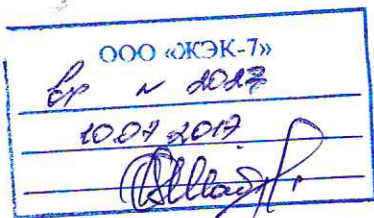 ООО «ЖЭК-7»
Вх № 2027
10.07.2017